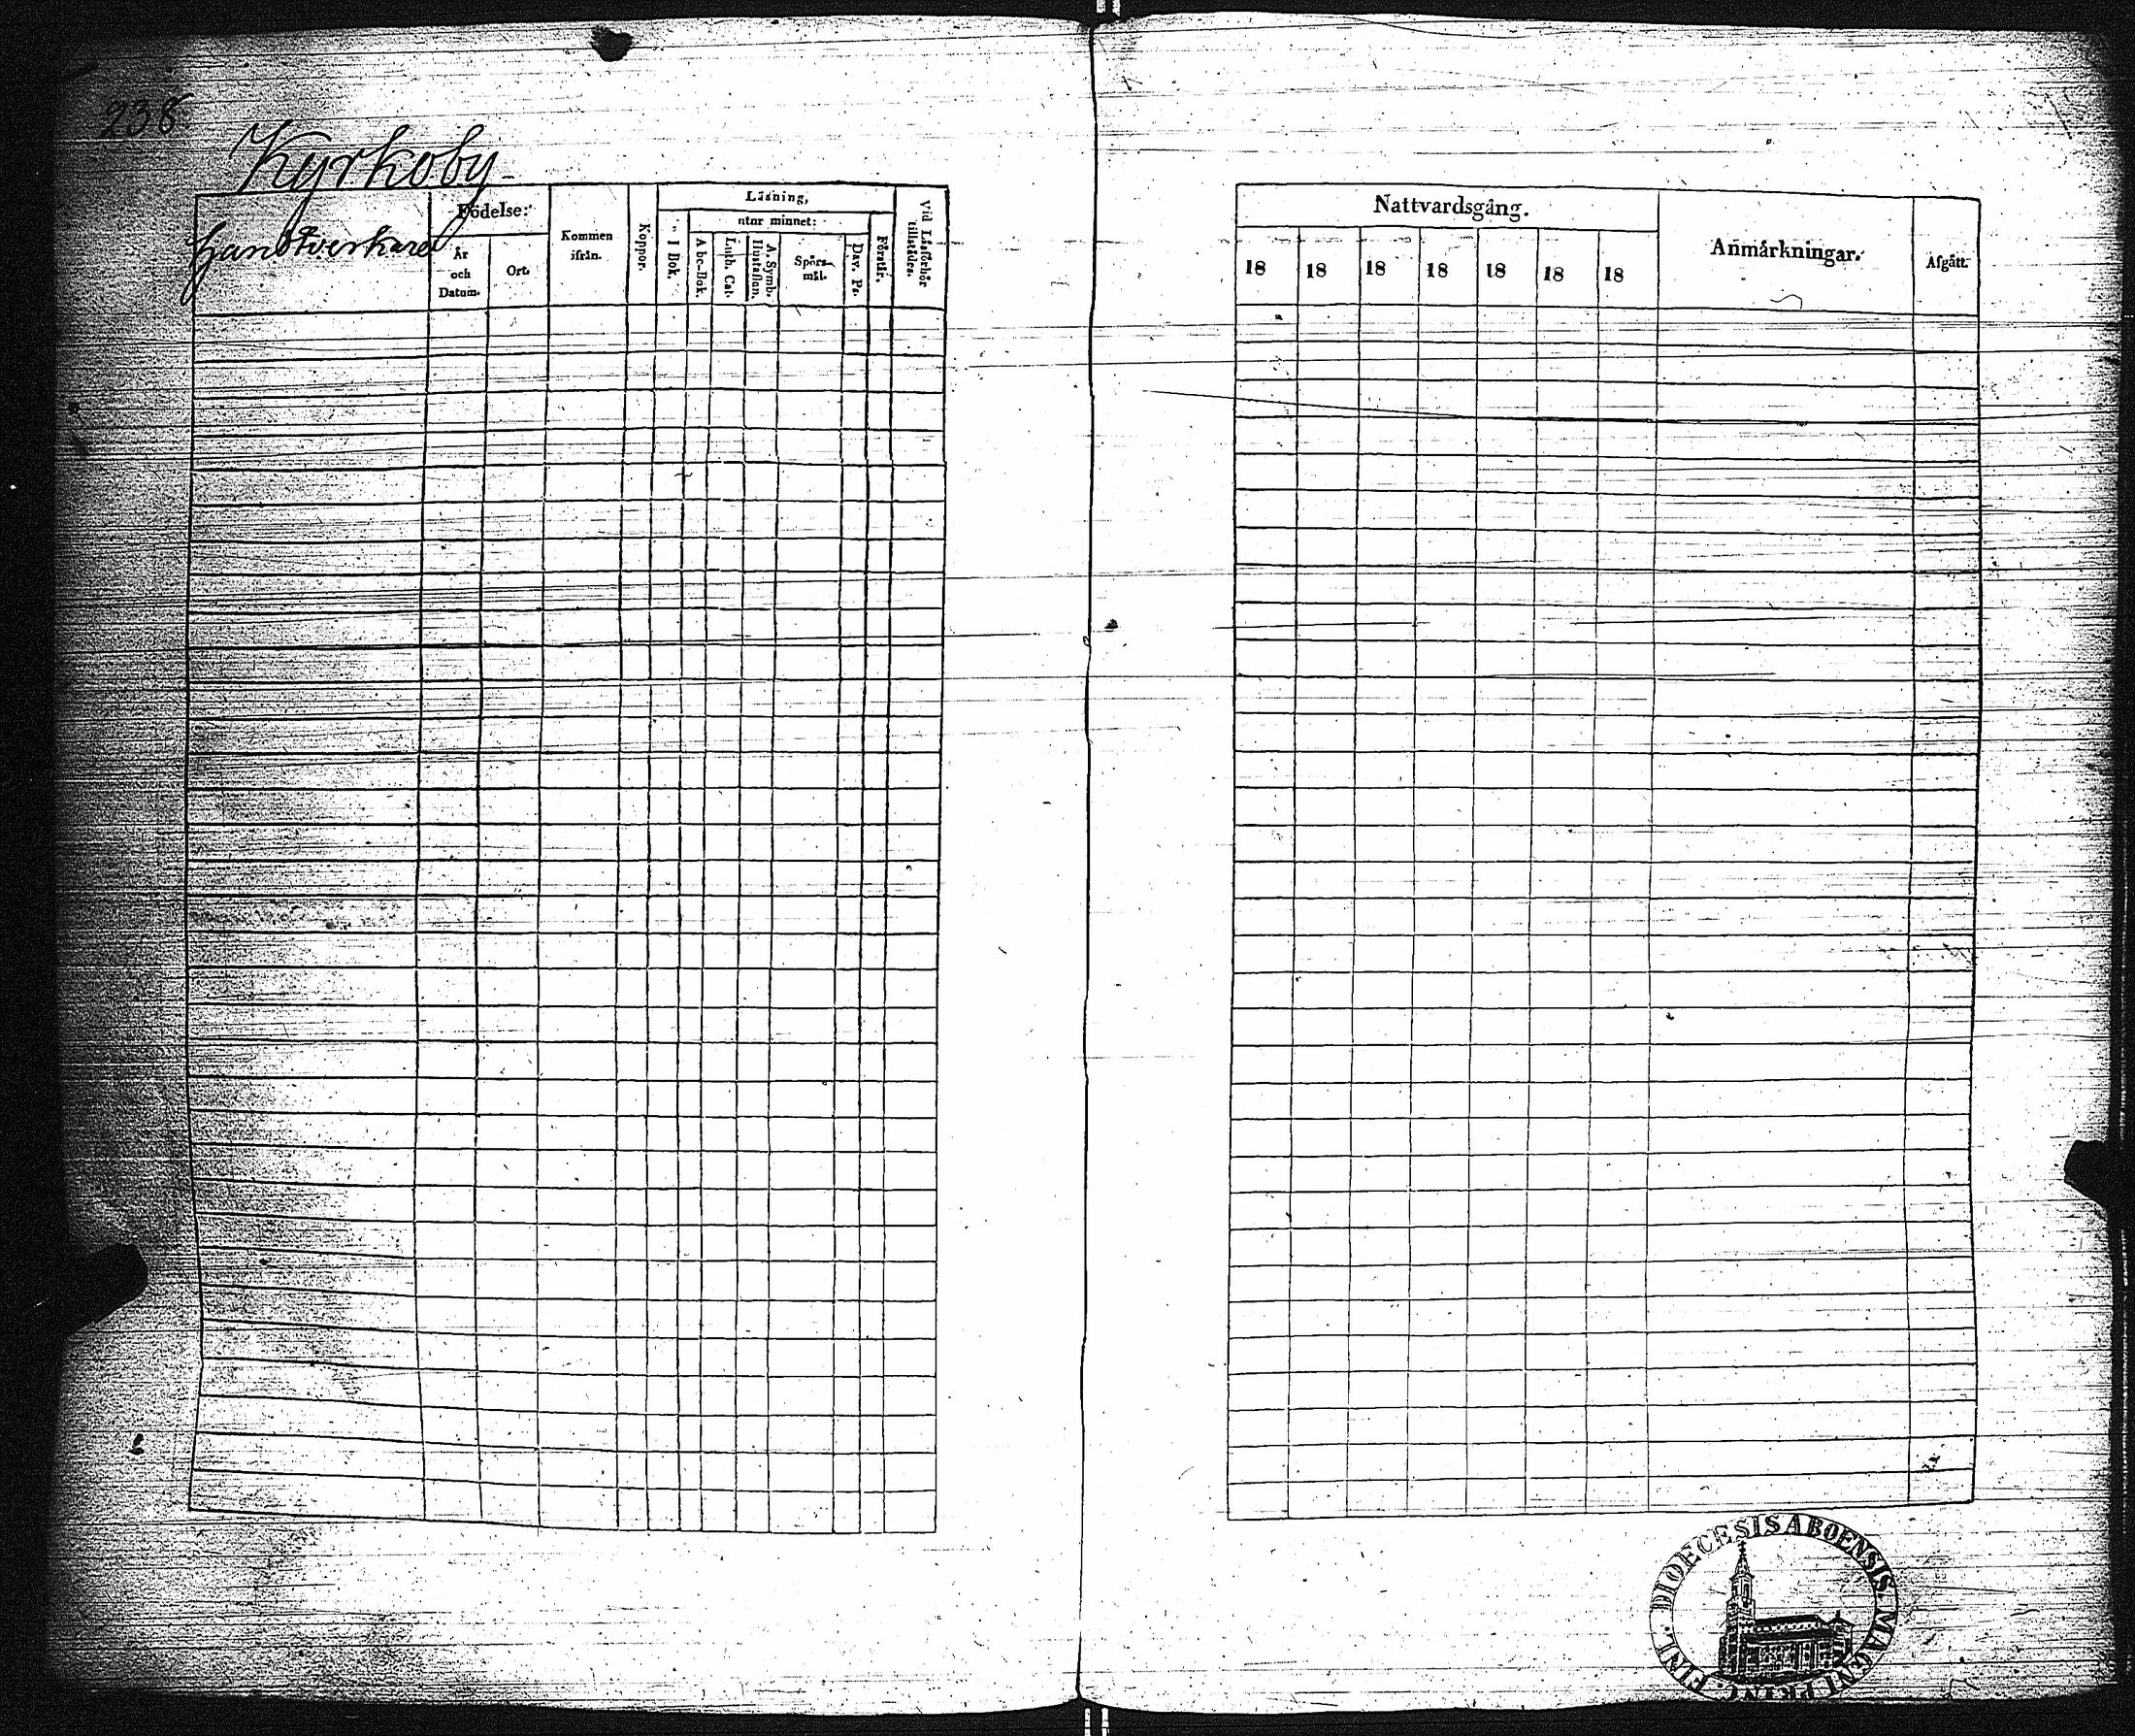 238.
Kyrkoby
Handtverkare
Födelse:
År
och
Datum.
Ort.
Kommen
ifrån.
Koppor.
Läsning,
I Bok.
utur minnet:
Abc-Bok.
Luth. Cat.
A. Symb.
Hustaflan.
Spörs-
mål.
Dav. Ps.
Förstår.
Vid Läsförhör
tillstädes.
Nattvardsgång.
18 18 18 18 18 18 18
Anmärkningar.
Afgått.
DIOECESIS ABOENSIS MAGNI PRINC. FINL.